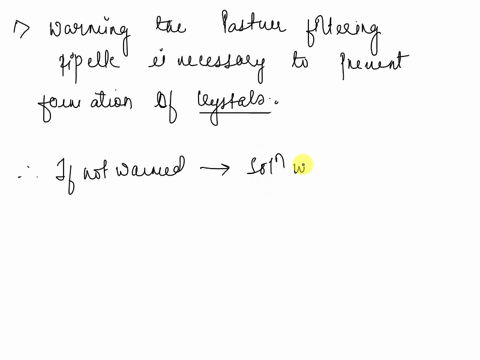 ▷ Warming the Pasteur filtering
pipette is necessary to prevent
formation of crystals.
∴ If not warmed → Solⁿ w